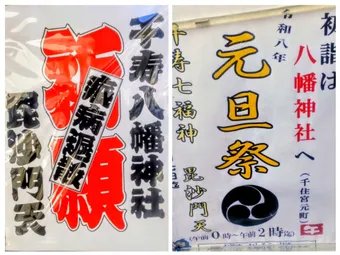 千寿八幡神社
祈願
疾病退散
毘沙門天
初詣は
八幡神社へ
(千住宮元町)
午
令和八年
元旦祭
(午前0時〜午前2時迄)
千寿七福神 毘沙門天